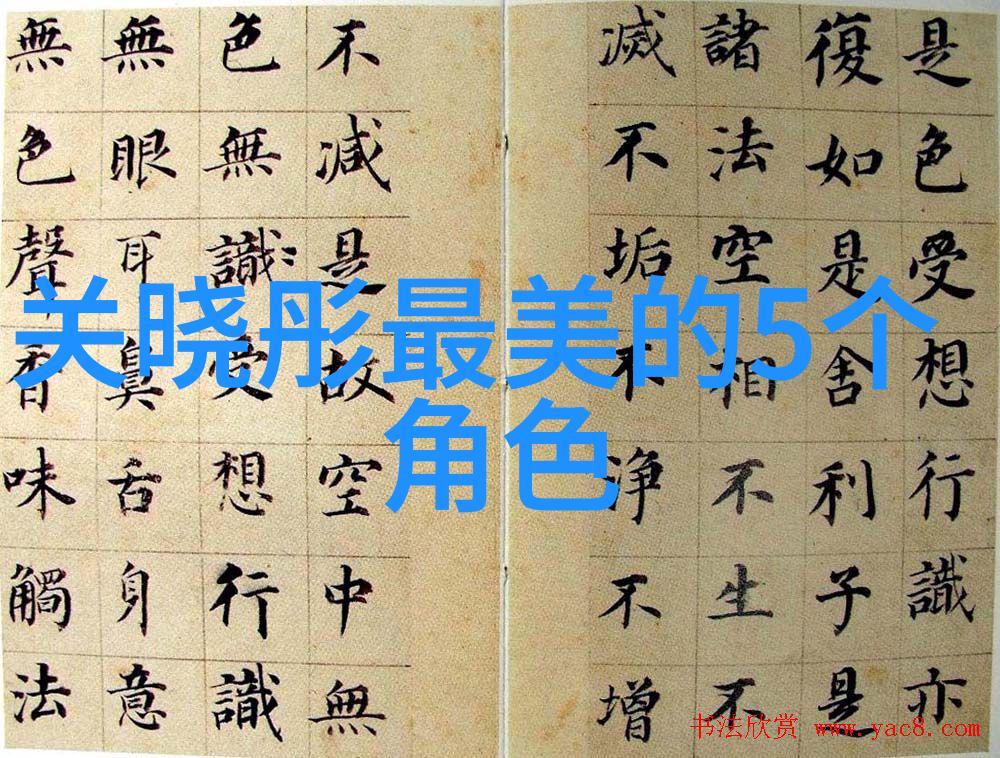 是色受想行識亦
復如是舍利子是
諸法空相不生不
滅不垢不淨不增
不減是故空中無
色無識受想行識
無眼耳鼻舌身意
無色聲香味觸法
关晓彤最美的5个
角色
书法欣赏 www.yac8.com